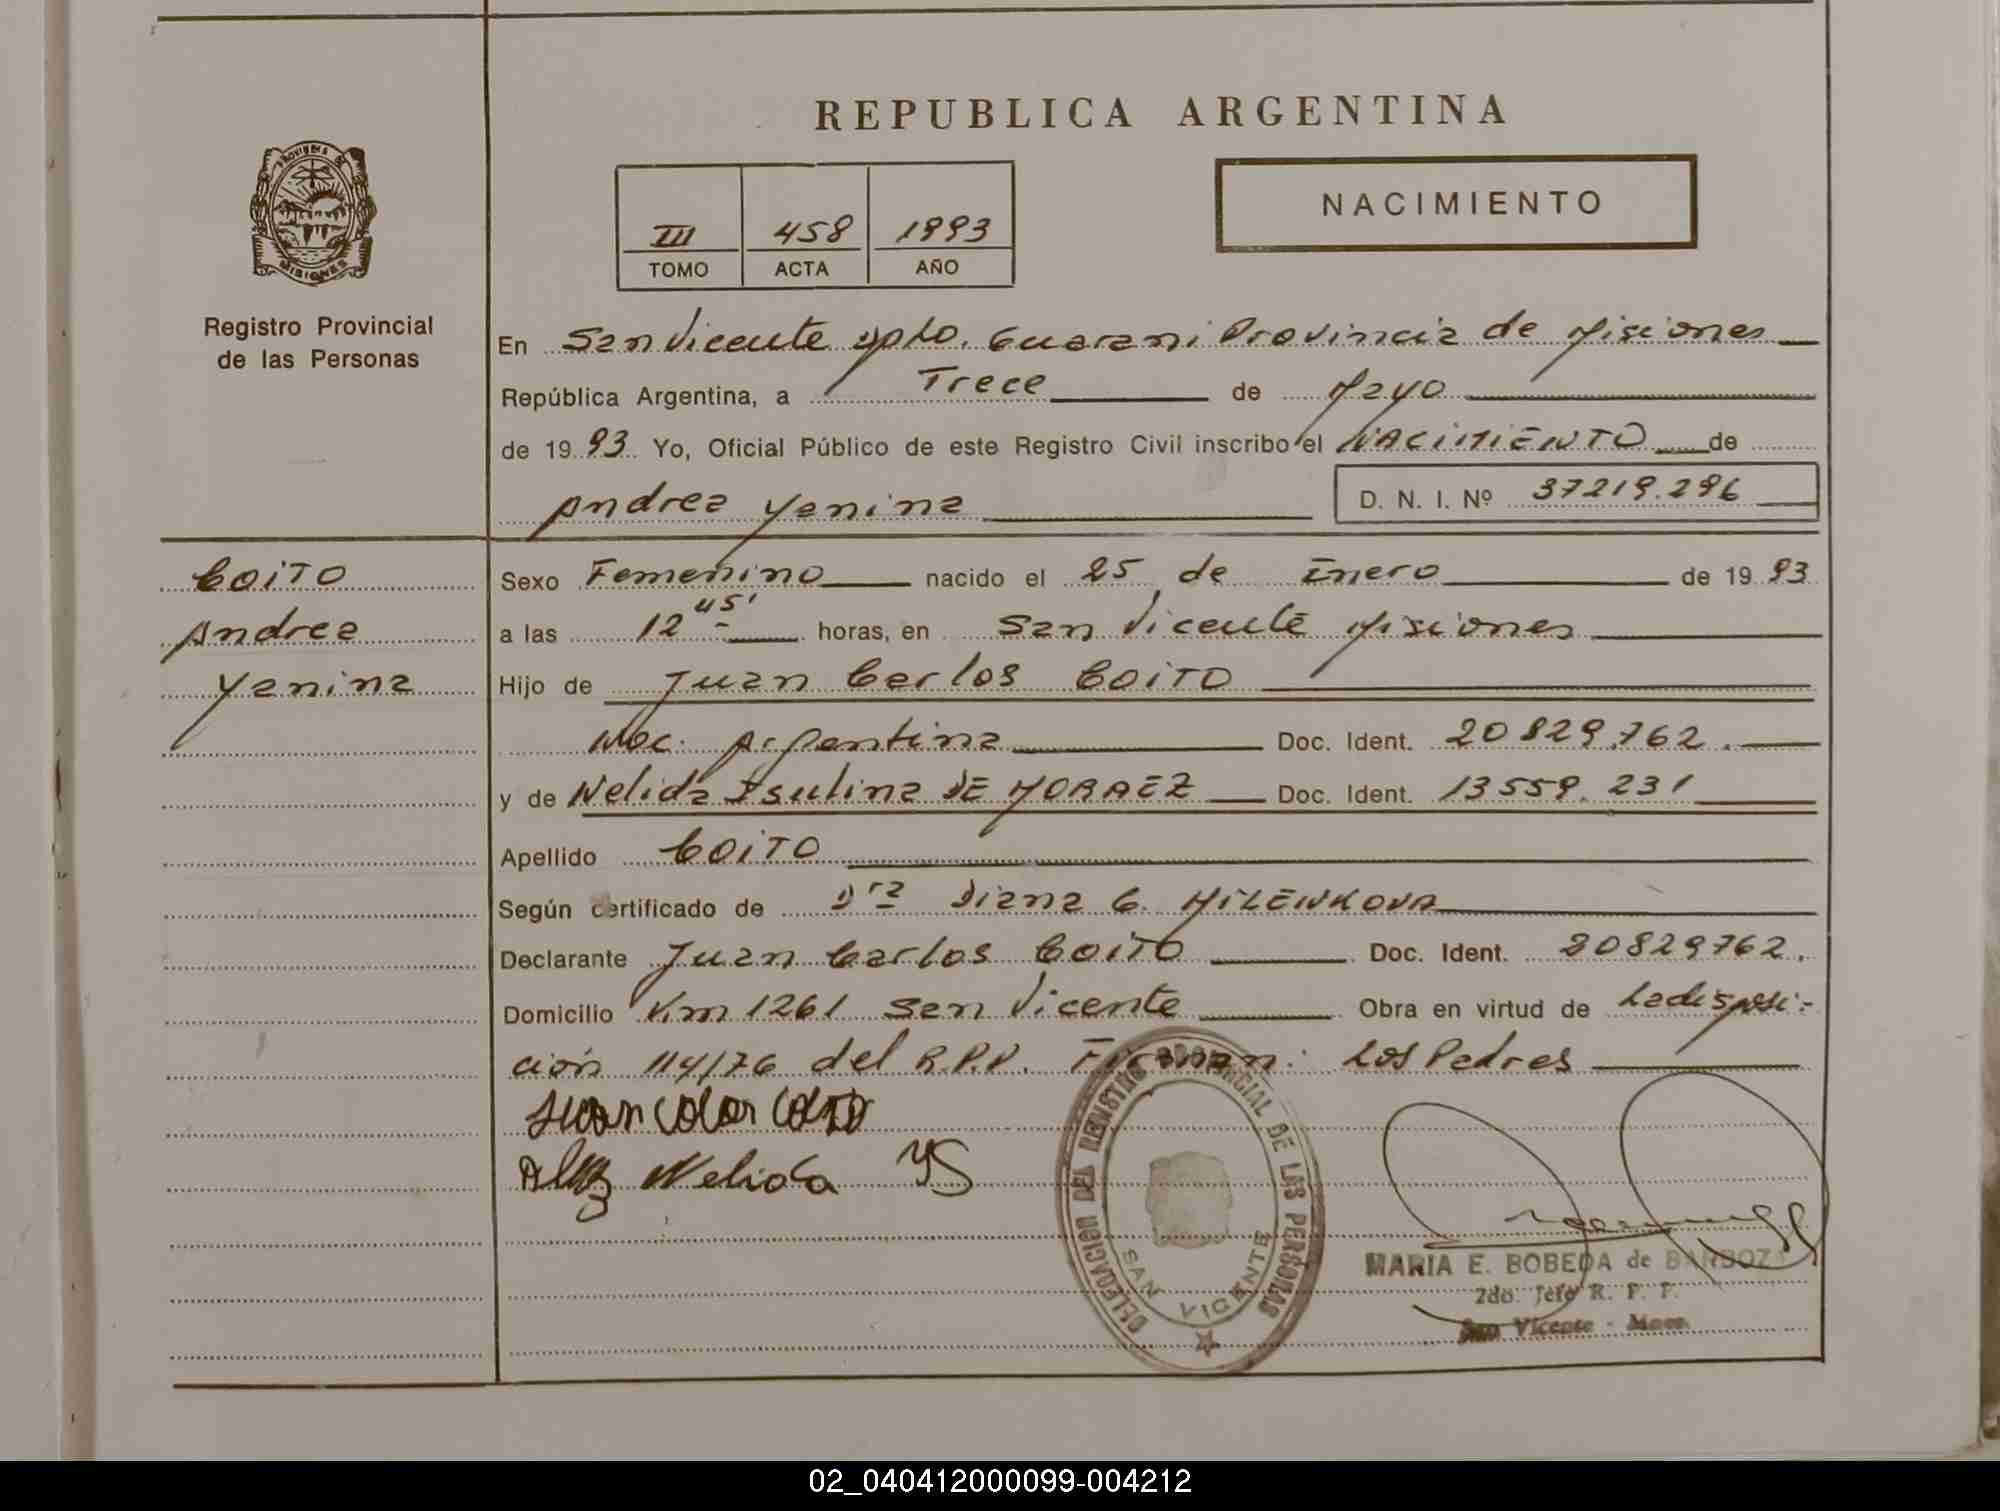 REPUBLICA ARGENTINA
PROVINCIA DE
MISIONES
Registro Provincial
de las Personas
III 458 1993
TOMO ACTA AÑO
NACIMIENTO
En San Vicente Dpto. Guarani Provincia de Misiones
República Argentina, a Trece de Mayo
de 1993 Yo, Oficial Público de este Registro Civil inscribo el NACIMIENTO de
Andrea Yanina D. N. I. Nº 37219.296
COITO
Andrea
Yanina
Sexo Femenino nacido el 25 de Enero de 1993
a las 12 45' horas, en San Vicente Misiones
Hijo de Juan Carlos COITO
Nac. Argentina Doc. Ident. 20829.762.
y de Nelida Isulina DE MORAEZ Doc. Ident. 13559.231
Apellido COITO
Según certificado de Dra Diana C. MILENKOVA
Declarante Juan Carlos COITO Doc. Ident. 20829762.
Domicilio Km 1261 San Vicente Obra en virtud de La disposi-
ción 114/76 del R.P.P. Firman: Los Padres
Nelida
DELEGACION DEL REGISTRO PROVINCIAL DE LAS PERSONAS
SAN VICENTE
MARIA E. BOBEDA de BARBOZA
2do. Jefe R. P. P.
San Vicente - Mnes.
02_040412000099-004212